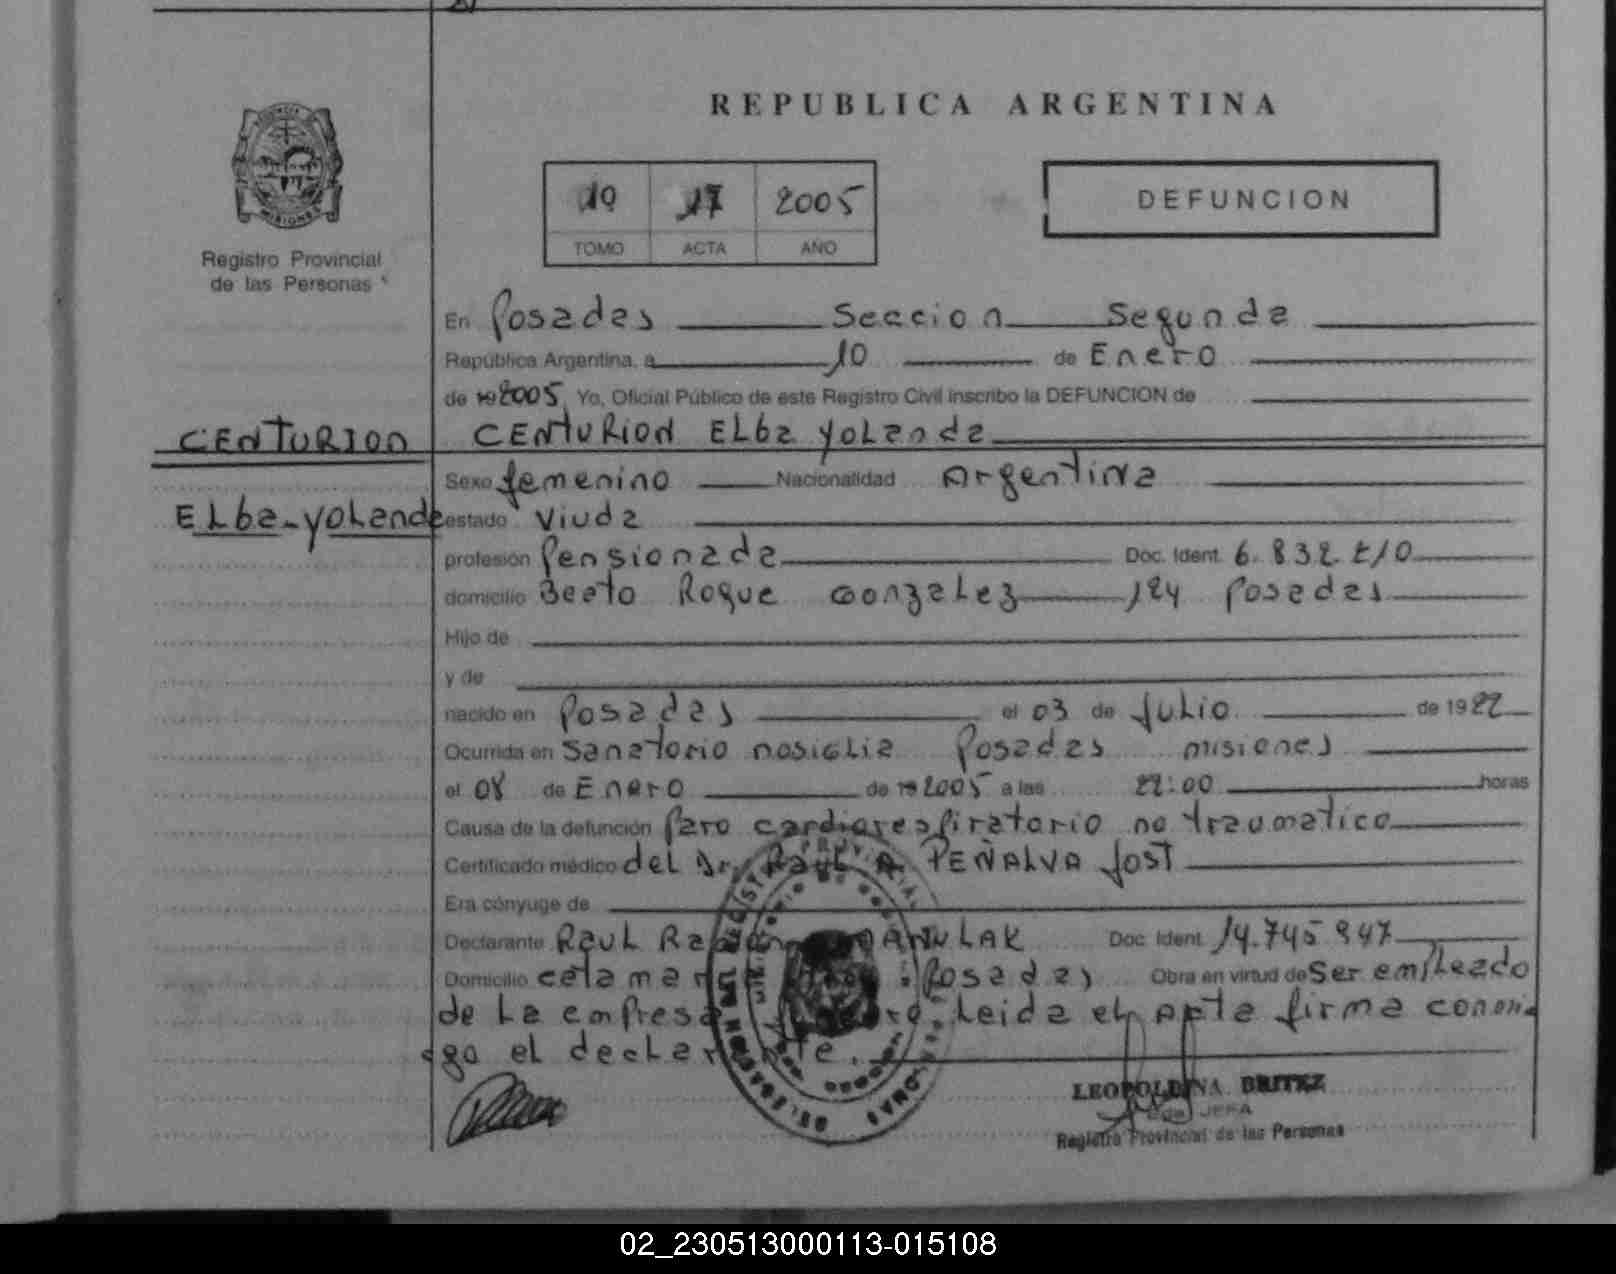 REPUBLICA ARGENTINA
MISIONES
Registro Provincial
de las Personas
10 17 2005
TOMO ACTA AÑO
DEFUNCION
En Posadas Seccion Segunda
República Argentina, a 10 de Enero
de 19 2005 Yo, Oficial Público de este Registro Civil inscribo la DEFUNCION de
CENTURION
CENTURION ELba YoLanda
Sexo femenino Nacionalidad Argentina
ELba-yoLanda
estado Viuda
profesión Pensionada Doc. Ident. 6.832.210
domicilio Beato Roque GonzaLez 124 Posadas
Hijo de
y de
nacido en Posadas el 03 de JuLio de 1922
Ocurrida en Sanatorio nosigLia Posadas misiones
el 08 de Enero de 19 2005 a las 22:00 horas
Causa de la defunción Paro cardiorespiratorio no traumatico
Certificado médico deL Dr. RauL A. PEÑALVA JosT
Era cónyuge de
Declarante RauL Doc. Ident. 14.745.947
Domicilio Posadas Obra en virtud de Ser empLeado
de La empresa Leida el acta firma conmi
go el declarante.
LEOPOLDINA BRITEZ
JEFA
Registro Provincial de las Personas
02_230513000113-015108